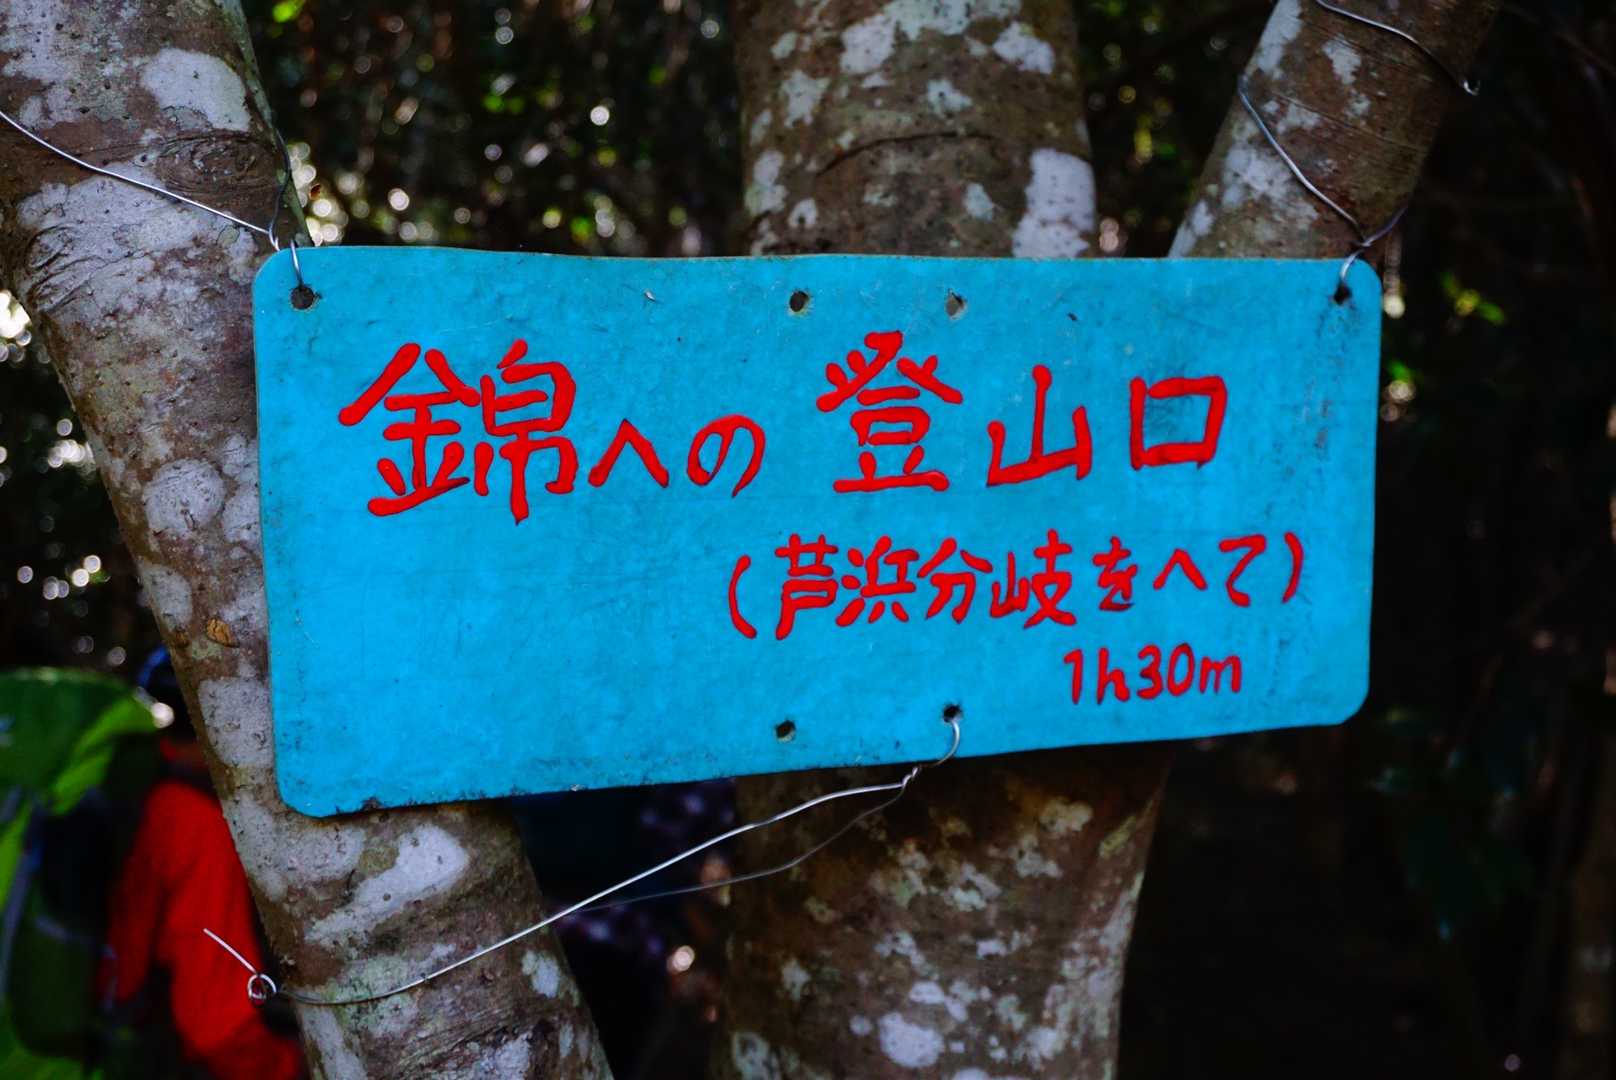 錦への登山口
(芦浜分岐をへて)
1h30m